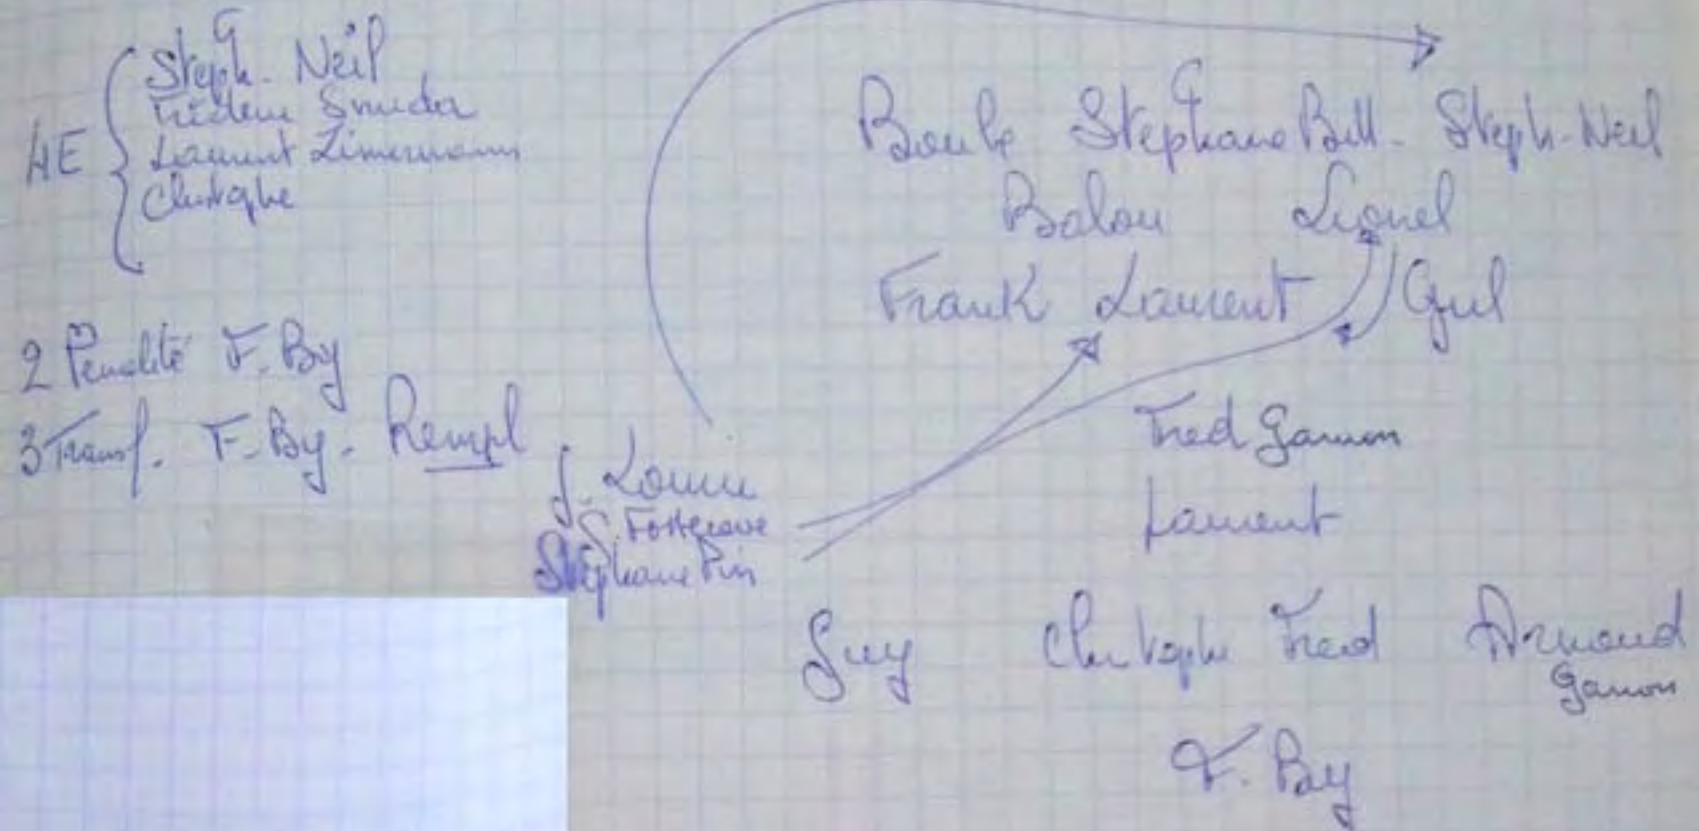 4E
Steph. Neil
Laurent Zimermann
Christophe
2 Penalité F. By
3 Transf. F. By. Rempl
Stephane Pin
Boube Stephane Bill. Steph. Neil
Balou Lionel
Frank Laurent
Fred Gamon
Laurent
Guy Christophe Fred Arnaud
Gamon
F. By